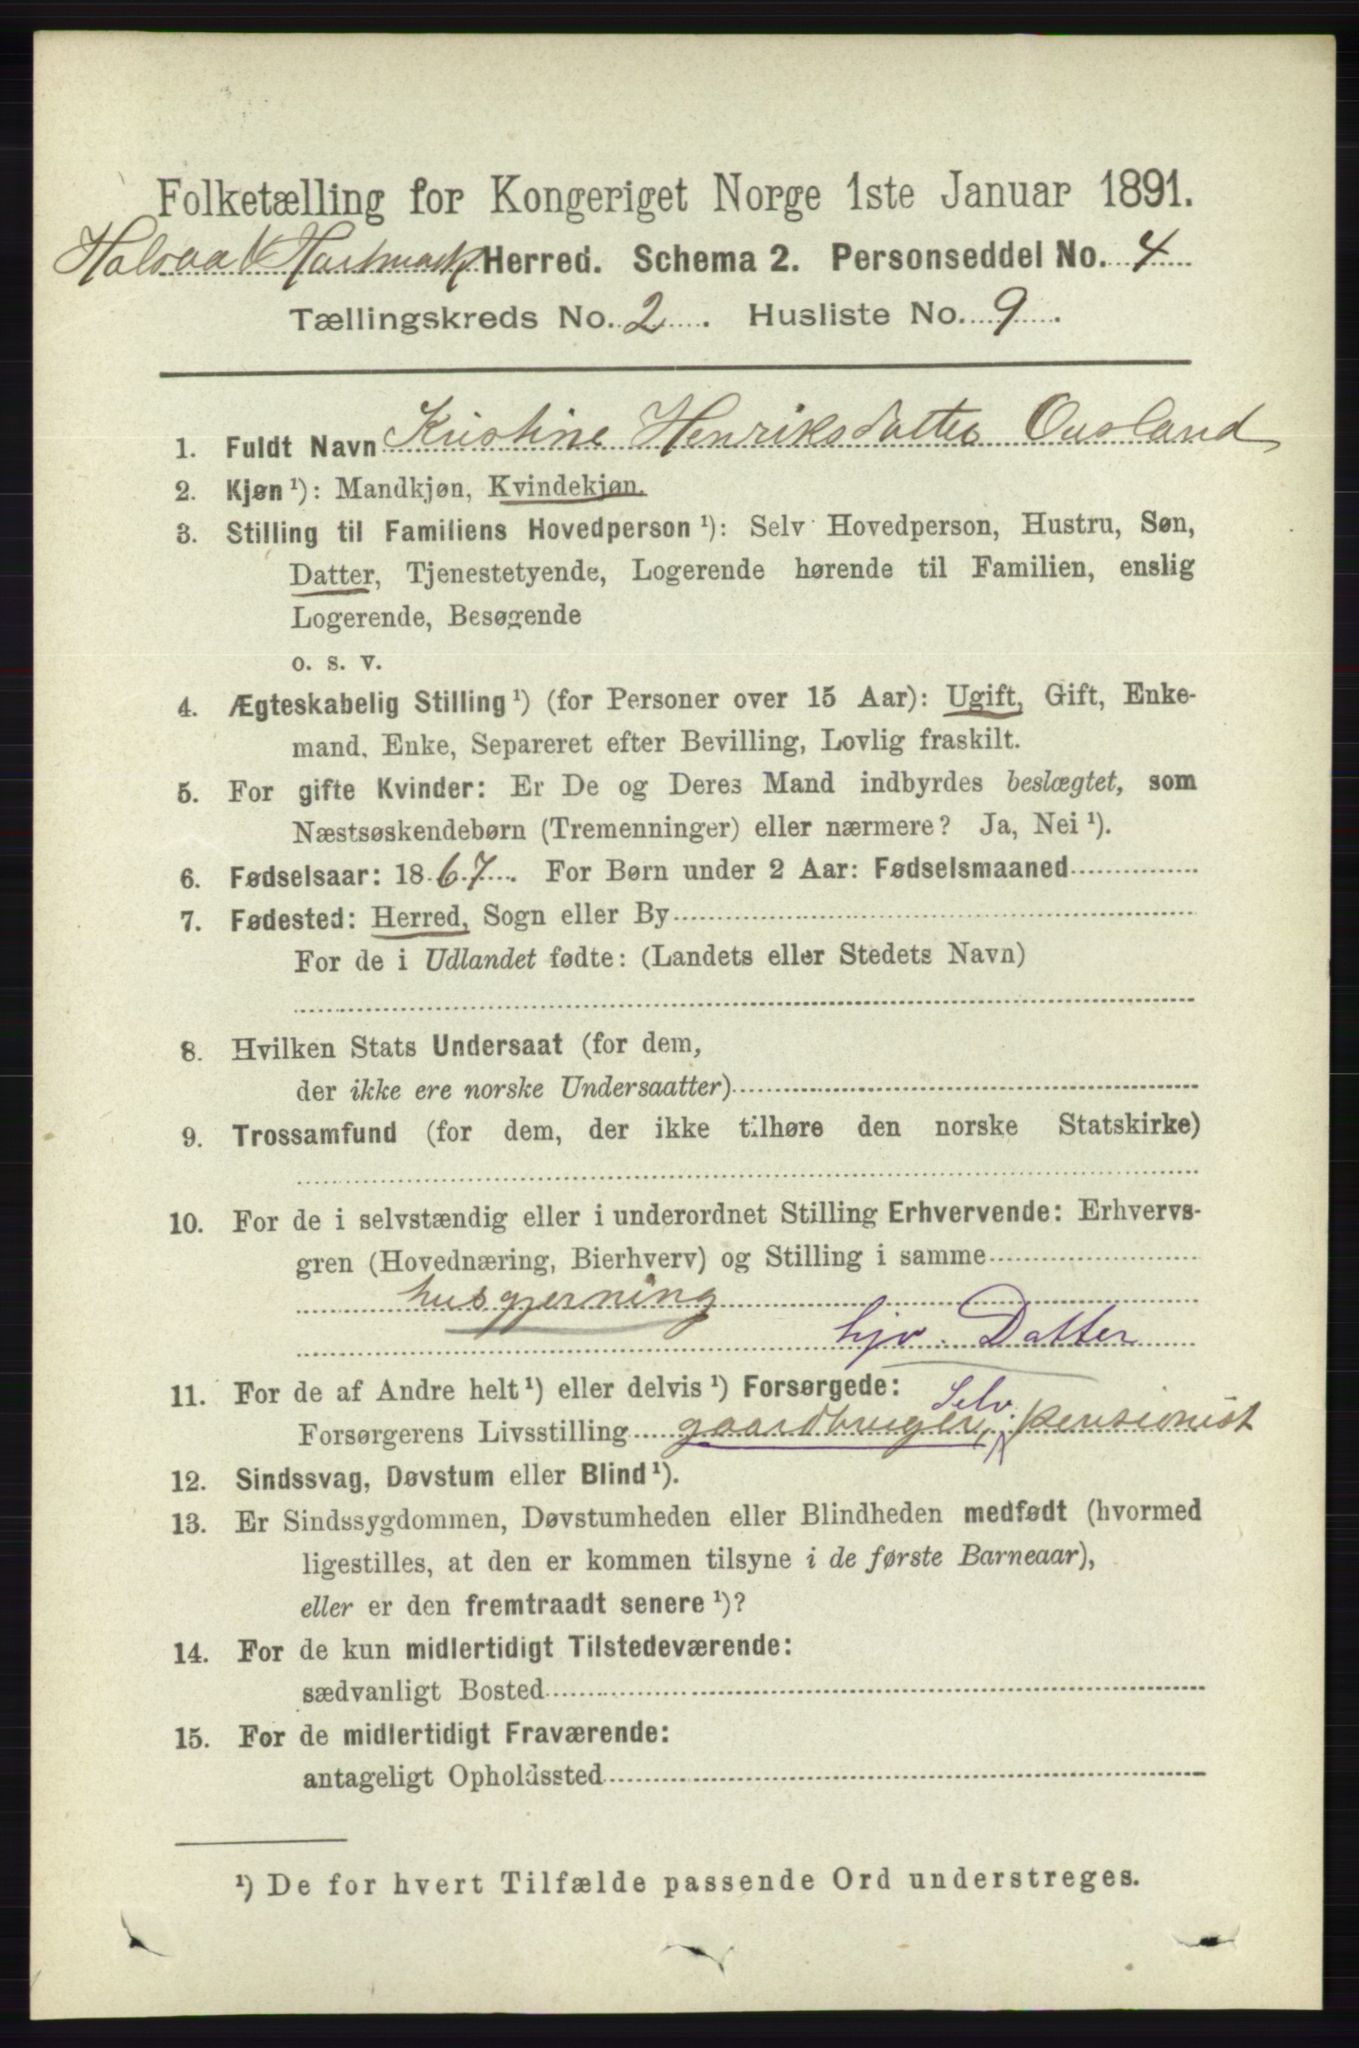 Folketælling for Kongeriget Norge 1ste Januar 1891.
Halsaa & Hartmark Herred. Schema 2. Personseddel No. 4
Tællingskreds No. 2. Husliste No. 9.
1. Fuldt Navn Kristine Henriksdatter Ousland
2. Kjøn ¹): Mandkjøn, Kvindekjøn.
3. Stilling til Familiens Hovedperson ¹): Selv Hovedperson, Hustru, Søn,
Datter, Tjenestetyende, Logerende hørende til Familien, enslig
Logerende, Besøgende
o. s. v.
4. Ægteskabelig Stilling ¹) (for Personer over 15 Aar): Ugift, Gift, Enke-
mand, Enke, Separeret efter Bevilling, Lovlig fraskilt.
5. For gifte Kvinder: Er De og Deres Mand indbyrdes beslægtet, som
Næstsøskendebørn (Tremenninger) eller nærmere? Ja, Nei ¹).
6. Fødselsaar: 1867. For Børn under 2 Aar: Fødselsmaaned
7. Fødested: Herred, Sogn eller By
For de i Udlandet fødte: (Landets eller Stedets Navn)
8. Hvilken Stats Undersaat (for dem,
der ikke ere norske Undersaatter)
9. Trossamfund (for dem, der ikke tilhøre den norske Statskirke)
10. For de i selvstændig eller i underordnet Stilling Erhvervende: Erhvervs-
gren (Hovednæring, Bierhverv) og Stilling i samme
husgjerning
hjv. Datter
11. For de af Andre helt ¹) eller delvis ¹) Forsørgede:
Selv.
Forsørgerens Livsstilling gaardbruger, pensionist
12. Sindssvag, Døvstum eller Blind ¹).
13. Er Sindssygdommen, Døvstumheden eller Blindheden medfødt (hvormed
ligestilles, at den er kommen tilsyne i de første Barneaar),
eller er den fremtraadt senere ¹)?
14. For de kun midlertidigt Tilstedeværende:
sædvanligt Bosted
15. For de midlertidigt Fraværende:
antageligt Opholdssted
¹) De for hvert Tilfælde passende Ord understreges.